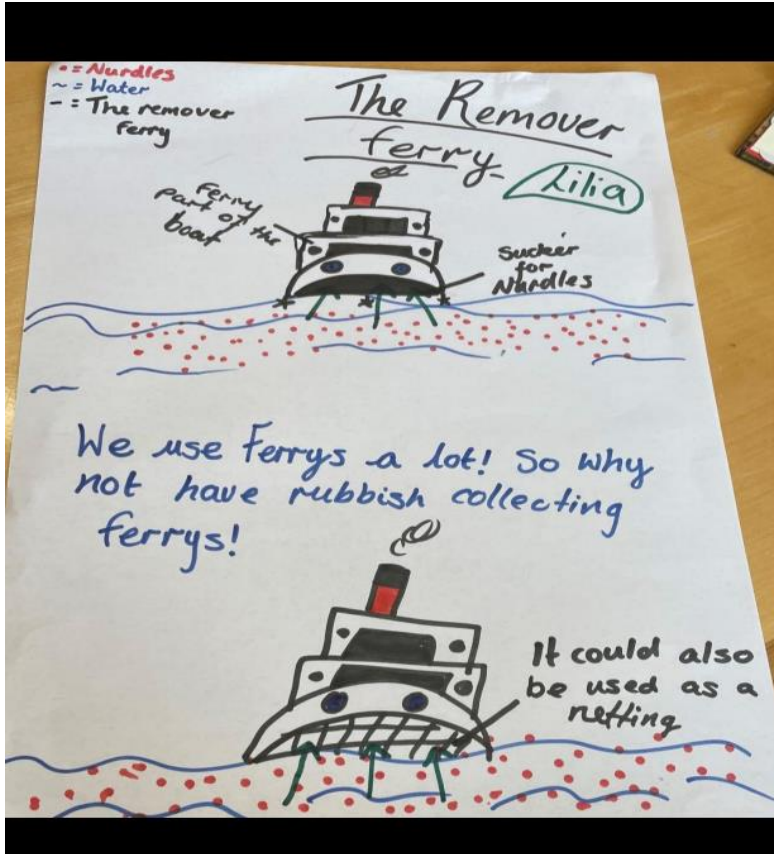 • = Nurdles
~ = Water
- = The remover
ferry
The Remover
ferry
Lilia
Ferry
part of the
boat
Sucker
for
Nurdles
We use Ferrys a lot! So why
not have rubbish collecting
ferrys!
It could also
be used as a
netting